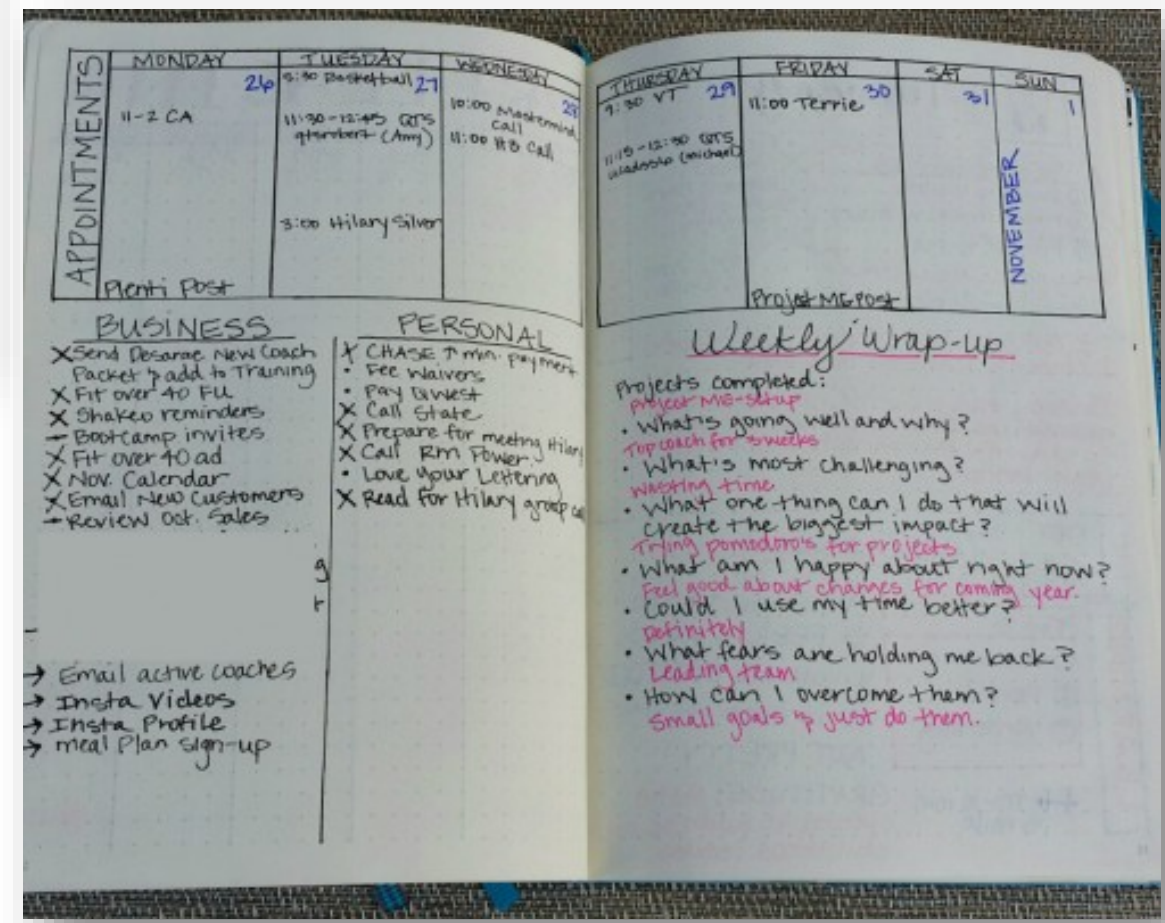 APPOINTMENTS
MONDAY
26
11-2 CA
Plenti Post
TUESDAY
Basketball 27
11:30-12:45 QTS
(Amy)
3:00 Hilary Silver
WEDNESDAY
28
10:00 Mastermind
Call
11:00 Call
THURSDAY
9:30 VT 29
11:15-12:30 QTS
(michael)
FRIDAY
30
11:00 Terrie
Project ME POST
SAT
31
SUN
1
NOVEMBER
BUSINESS
X Send Desarae New Coach
Packet & add to Training
X Fit over 40 FU
X Shakeo reminders
– Bootcamp invites
X Fit over 40 ad
X Nov. Calendar
X Email New Customers
– Review Oct. Sales
g
–
→ Email active coaches
→ Insta Videos
→ Insta Profile
→ meal Plan sign-up
PERSONAL
X CHASE ↑ min. payment
• Fee Waivers
• Pay QWest
X Call State
X Prepare for meeting Hilary
X Call Rm Power
• Love Your Lettering
X Read for Hilary group
Weekly Wrap-up
Projects completed:
Project ME-Setup
• What's going well and why?
Top coach for 3 weeks
• What's most challenging?
Wasting time
• What one thing can I do that will
create the biggest impact?
Trying pomodoro's for projects
• What am I happy about right now?
Feel good about changes for coming year.
• Could I use my time better?
Definitely
• What fears are holding me back?
Leading team
• How can I overcome them?
Small goals & just do them.